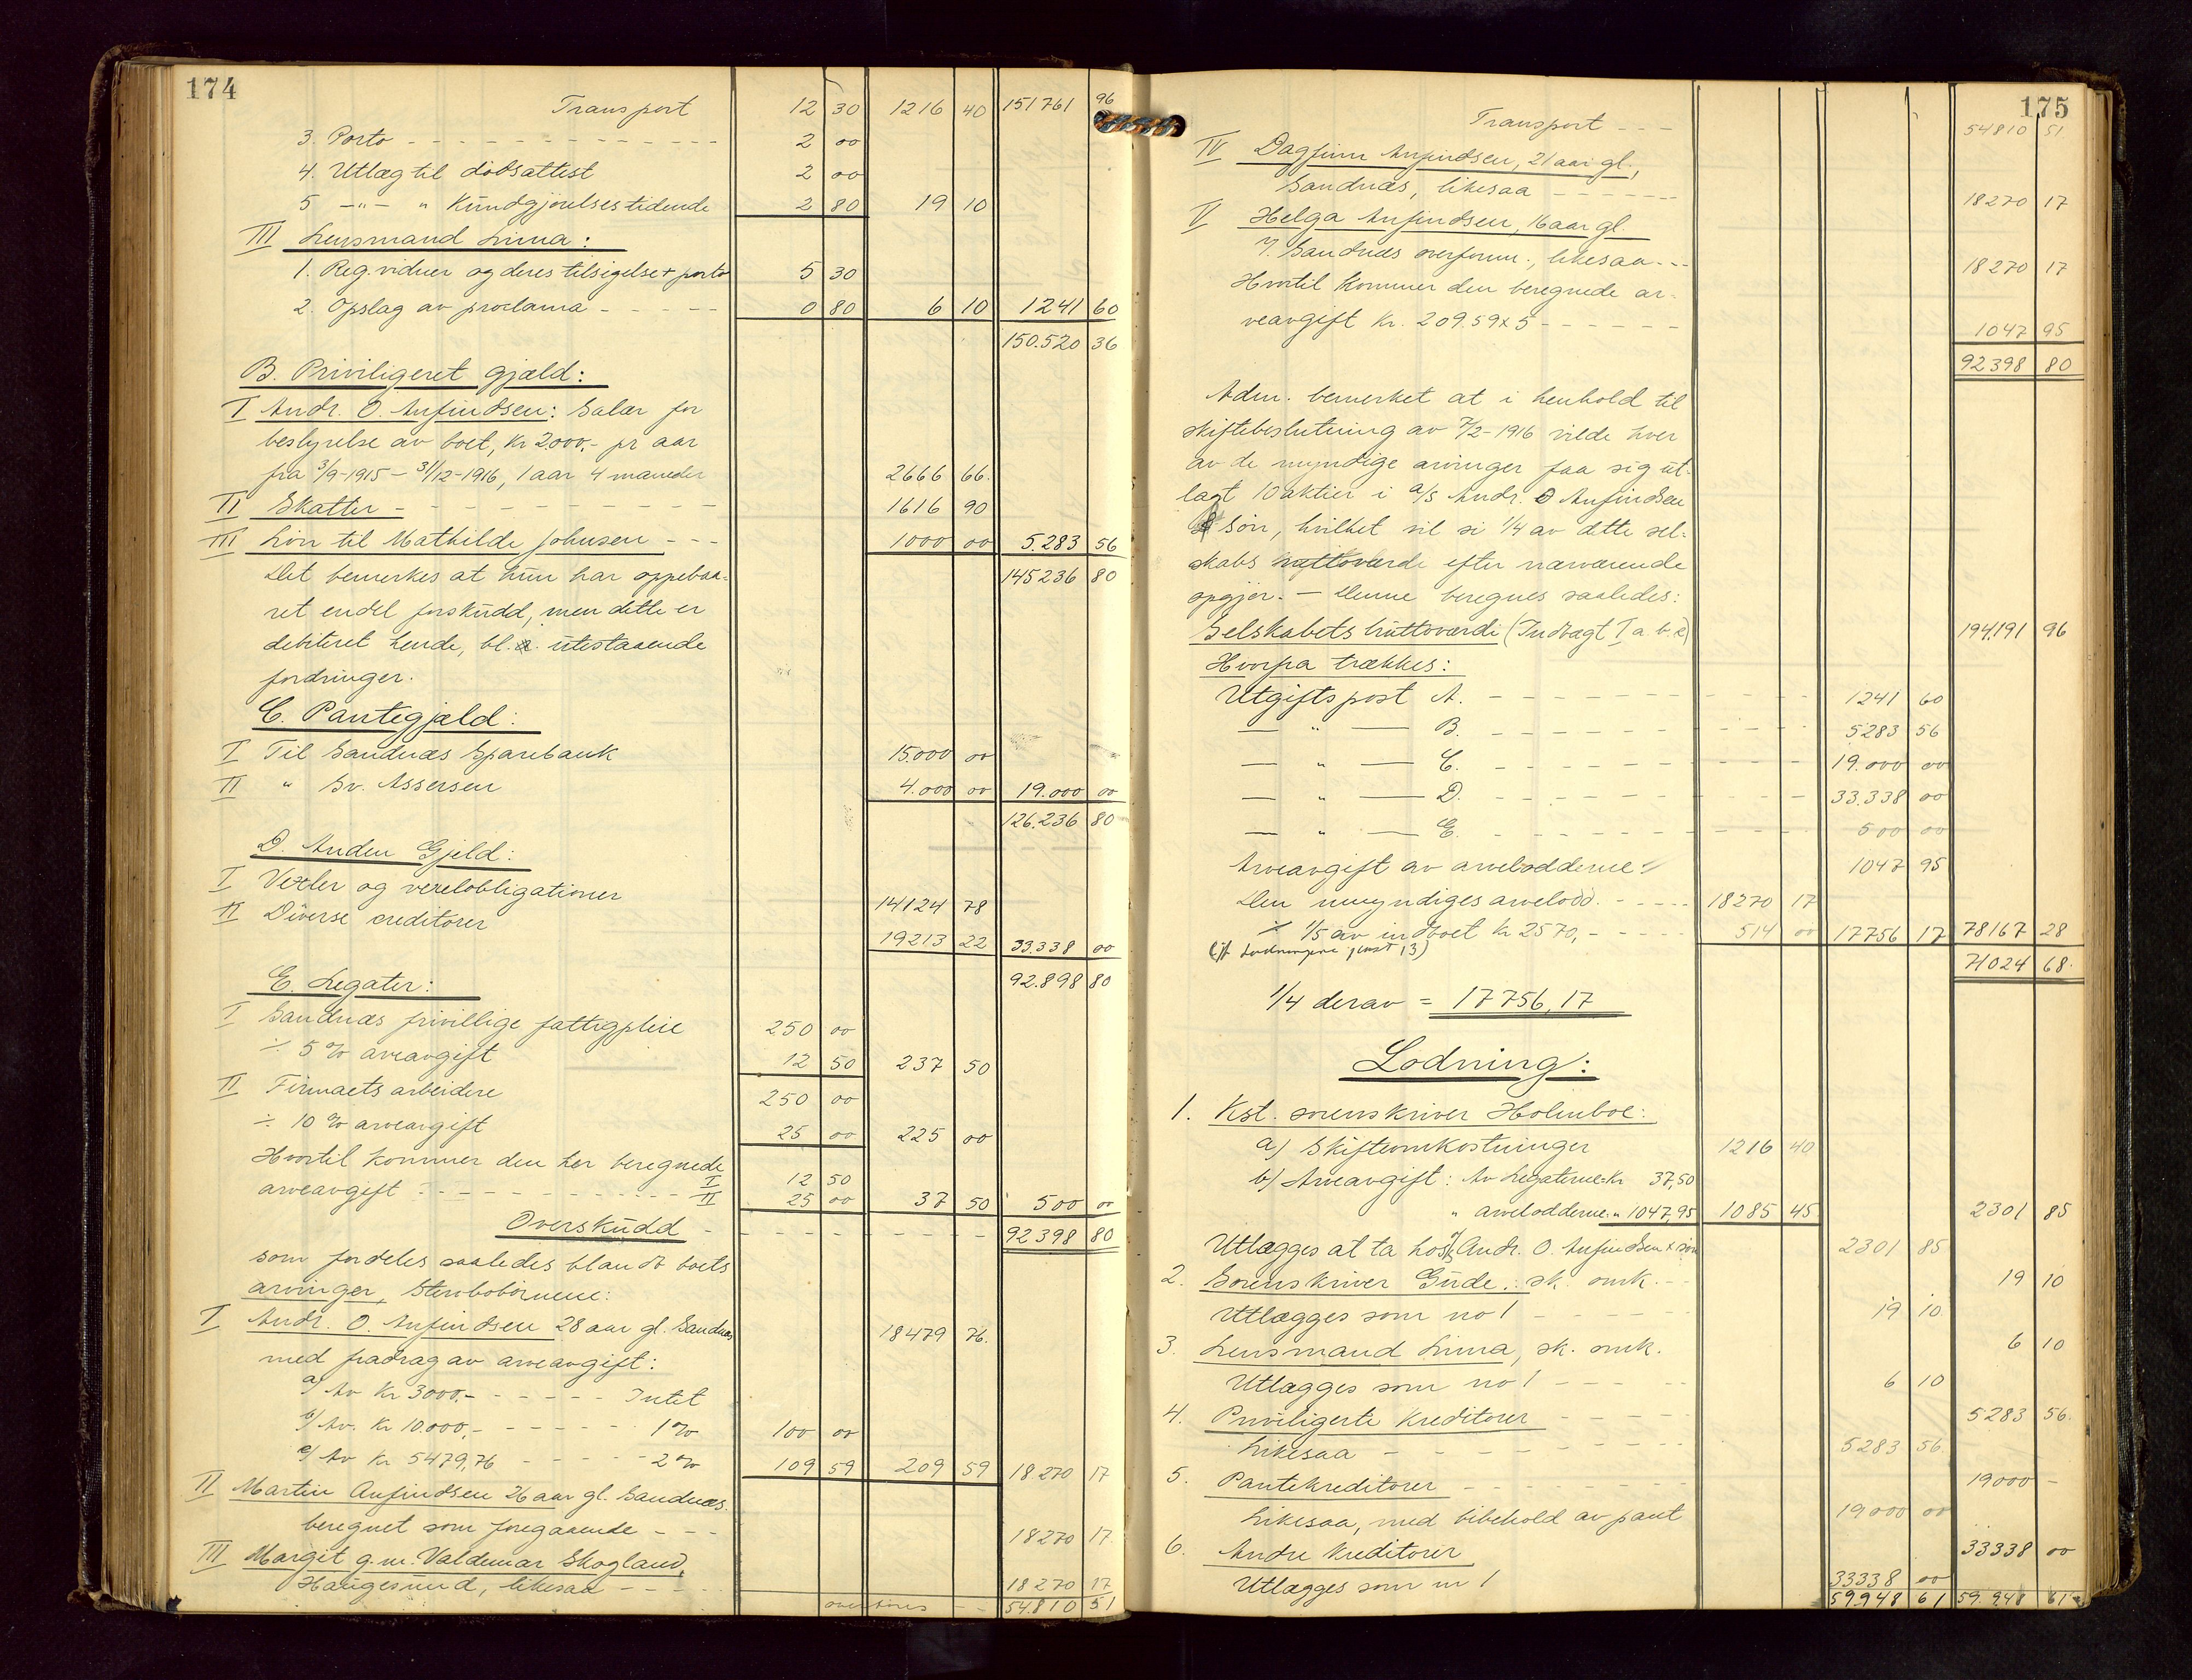 174
Transport 12 30 1216 40 151761 96
3. Porto - - - 2 00
4. Utlæg til dødsattest 2 00
5 -"- " Kundgjørelsestidende 2 80 19 10
III Lensmand Lima:
1. Reg.vidner og deres tilsigelse + porto 5 30
2. Opslag av proclama - - - 0 80 6 10 1241 60
150.520 36
B. Priviligeret gjæld:
I Andr. O. Anfindsen: Salær for
bestyrelse av boet, kr 2000,- pr aar
fra 3/9-1915 - 31/12-1916, 1 aar 4 maneder 2666 66.
II Skatter - - - 1616 90
III Løn til Mathilde Johnsen - - - 1000 00 5.283 56
Det bemerkes at hun har oppebaa- 145236 80
ret endel forskudd, men dette er
debiteret hende, bl. a. utestaaende
fordringer.
C. Pantegjæld:
I Til Sandnæs Sparebank 15.000 00
II " Sv. Assersen 4.000 00 19.000 00
126.236 80
D. Anden Gjeld:
I Vexler og vexelobligationer 14124 78
II Diverse creditorer 19213 22 33.338 00
92.898 80
E. Legater:
I Sandnæs frivillige fattigpleie 250 00
÷ 5 % arveavgift 12 50 237 50
II Firmaets arbeidere 250 00
÷ 10 % arveavgift 25 00 225 00
Hvortil kommer den her beregnede
I 12 50
arveavgift - - - II 25 00 37 50 500 00
Overskudd - - - 92398 80
som fordeles saaledes blandt boets
arvinger, Stervbobørnene:
I Andr. O. Anfindsen 28 aar gl. Sandnæs 18479 76.
med fradrag av arveavgift:
a) Av Kr 3000,- - - - Intet
b) Av. Kr 10.000,- - - - 1 % 100 00
c) Av Kr 5479,76 - - - 2 % 109 59 209 59 18270 17
II Martin Anfindsen 26 aar gl. Sandnæs.
beregnet som foregaaende - - - 18270 17.
III Margit g.m. Valdemar Skogland,
Haugesund, likesaa - - - 18270 17
overføres - - 54.810 51
175
Transport - - - 54810 51
IV Dagfinn Anfindsen, 21 aar gl.,
Sandnæs, likesaa - - - 18270 17
V Helga Anfindsen, 16 aar gl.
Sandnæs overform., likesaa - - - 18270 17
Hvortil kommer den beregnede ar-
veavgift Kr. 209.59 x 5 - - - 1047 95
92398 80
Adm. bemerket at i henhold til
skiftebeslutning av 7/2-1916 vilde hver
av de myndige arvinger faa sig ut-
lagt 10 aktier i a/s Andr. O Anfindsen
& Søn, hvilket vil si 1/4 av dette sel-
skabs nettoværde efter nærværende
opgjør. - Denne beregnes saaledes:
Selskabets bruttoværdi (Indtægt I a. b. c) 194.191 96
Hvorfra trækkes:
Utgiftspost A. - - - 1241 60
— " — B. - - - 5283 56
— " — C. - - - 19.000 00
— " — D. - - - 33.338 00
— " — E. - - - 500 00
Arveavgift av arvelodderne 1047 95
Den umyndiges arvelodd. - - - 18270 17
÷ 1/5 av indboet kr 2570,- - - - 514 00 17756 17 78167 28
(jf. Lodningens post 13) 71024 68.
1/4 derav = 17756,17
Lodning:
1. Kst. sorenskriver Holmboe:
a) Skifteomkostninger 1216 40
b) Arveavgift: Av Legaterne Kr 37,50
" arvelodderne " 1047,95 1085 45 2301 85
Utlægges at ta hos a/s Andr. O. Anfindsen & søn 2301 85
2. Sorenskriver Gude: sk. omk. - - 19 10
Utlægges som no 1 - - - 19 10
3. Lensmand Lima, sk. omk. 6 10
Utlægges som no 1 - - - 6 10
4. Priviligerte kreditorer - - - 5283 56.
Likesaa - - - 5283 56.
5. Pantekreditorer - - - 19000 -
Likesaa, med bibehold av pant 19000 00
6. Andre kreditorer 33338 00
Utlægges som nr 1 33338 00
59.948 61 59.948 61